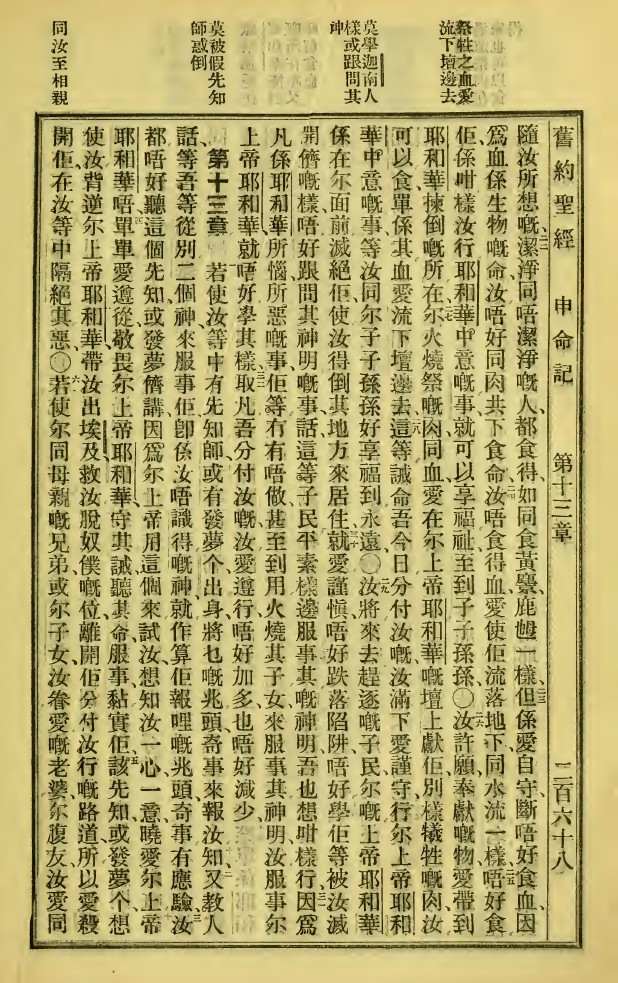 祭牲之血愛
流下壇邊去
莫學迦南人
樣或跟問其
神
莫被假先知
師惑倒
同汝至相親
舊約聖經 申命記 第十三章 二百六十八
隨汝所想嘅潔淨同唔潔淨嘅人都食得如同食黃麖鹿乸一樣但係愛自守斷唔好食血因
爲血係生物嘅命汝唔好同肉共下食命汝唔食得血愛使佢流落地下同水流一樣唔好食
佢係咁樣汝行耶和華中意嘅事就可以享福祉至到子子孫孫〇汝許願奉獻嘅物愛帶到
耶和華揀倒嘅所在尔火燒祭嘅肉同血愛在尔上帝耶和華嘅壇上獻佢別樣犠牲嘅肉汝
可以食單係其血愛流下壇邊去這等誡命吾今日分付汝嘅汝滿下愛謹守行尔上帝耶和
華中意嘅事等汝同尔子子孫孫好享福到永遠〇汝將來去趕逐嘅子民尔嘅上帝耶和華
係在尔面前滅絕佢使汝得倒其地方來居住就愛謹愼唔好跌落陷阱唔好學佢等被汝滅
開儕嘅樣唔好跟問其神明嘅事話這等子民平素樣邊服事其嘅神明吾也想咁樣行因爲
凡係耶和華所惱所惡嘅事佢等冇有唔做甚至到用火燒其子女來服事其神明汝服事尔
上帝耶和華就唔好學其樣取凡吾分付汝嘅汝愛遵行唔好加多也唔好減少
第十三章 若使汝等中有先知師或有發夢个出身將乜嘅兆頭奇事來報汝知又教人
話等吾等從別二個神來服事佢卽係汝唔識得嘅神就作算佢報哩嘅兆頭奇事有應驗汝
都唔好聽這個先知或發夢儕講因爲尔上帝用這個來試汝想知汝一心一意曉愛尔上帝
耶和華唔單單愛遵從敬畏尔上帝耶和華守其誡聽其命服事黏實佢該先知或發夢个想
使汝背逆尔上帝耶和華帶汝出埃及救汝脫奴僕嘅位離開佢分付汝行嘅路道所以愛殺
開佢在汝等中隔絕其惡〇若使尔同母親嘅兄弟或尔子女汝眷愛嘅老婆尔腹友汝愛同